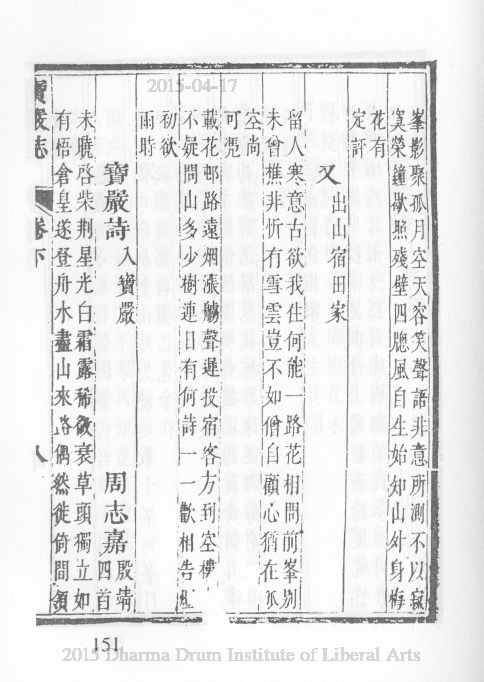 2015-04-17
峯影聚孤月空天容笑聲語非意所測不以寂
寞榮鐘歇照殘壁四牕風自生始知山外身梅
花有
定評
又 出山宿田家
留人寒意古欲我住何能一路花相問前峯別
未曾樵非忻有雪雲豈不如僧自顧心猶在
空尚
可凭
載花邨路遠烟漲觴聲遲投宿客方到空樓
不疑問山多少樹連日有何詩一一歡相告
初欲
雨時
寶嚴詩 入寶嚴 周志嘉 殷靖 四首
未曉啓柴荆星光白霜露稀微衰草頭獨立如
有悟倉皇遂登舟水盡山來路偶然徙倚間領
寶嚴志 卷下
151
2015 Dharma Drum Institute of Liberal Arts